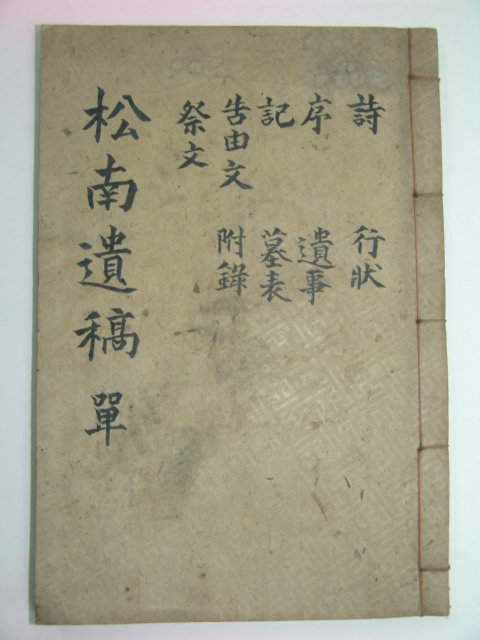 松南遺稿 單
詩 行狀
序 遺事
記 墓表
告由文 附錄
祭文